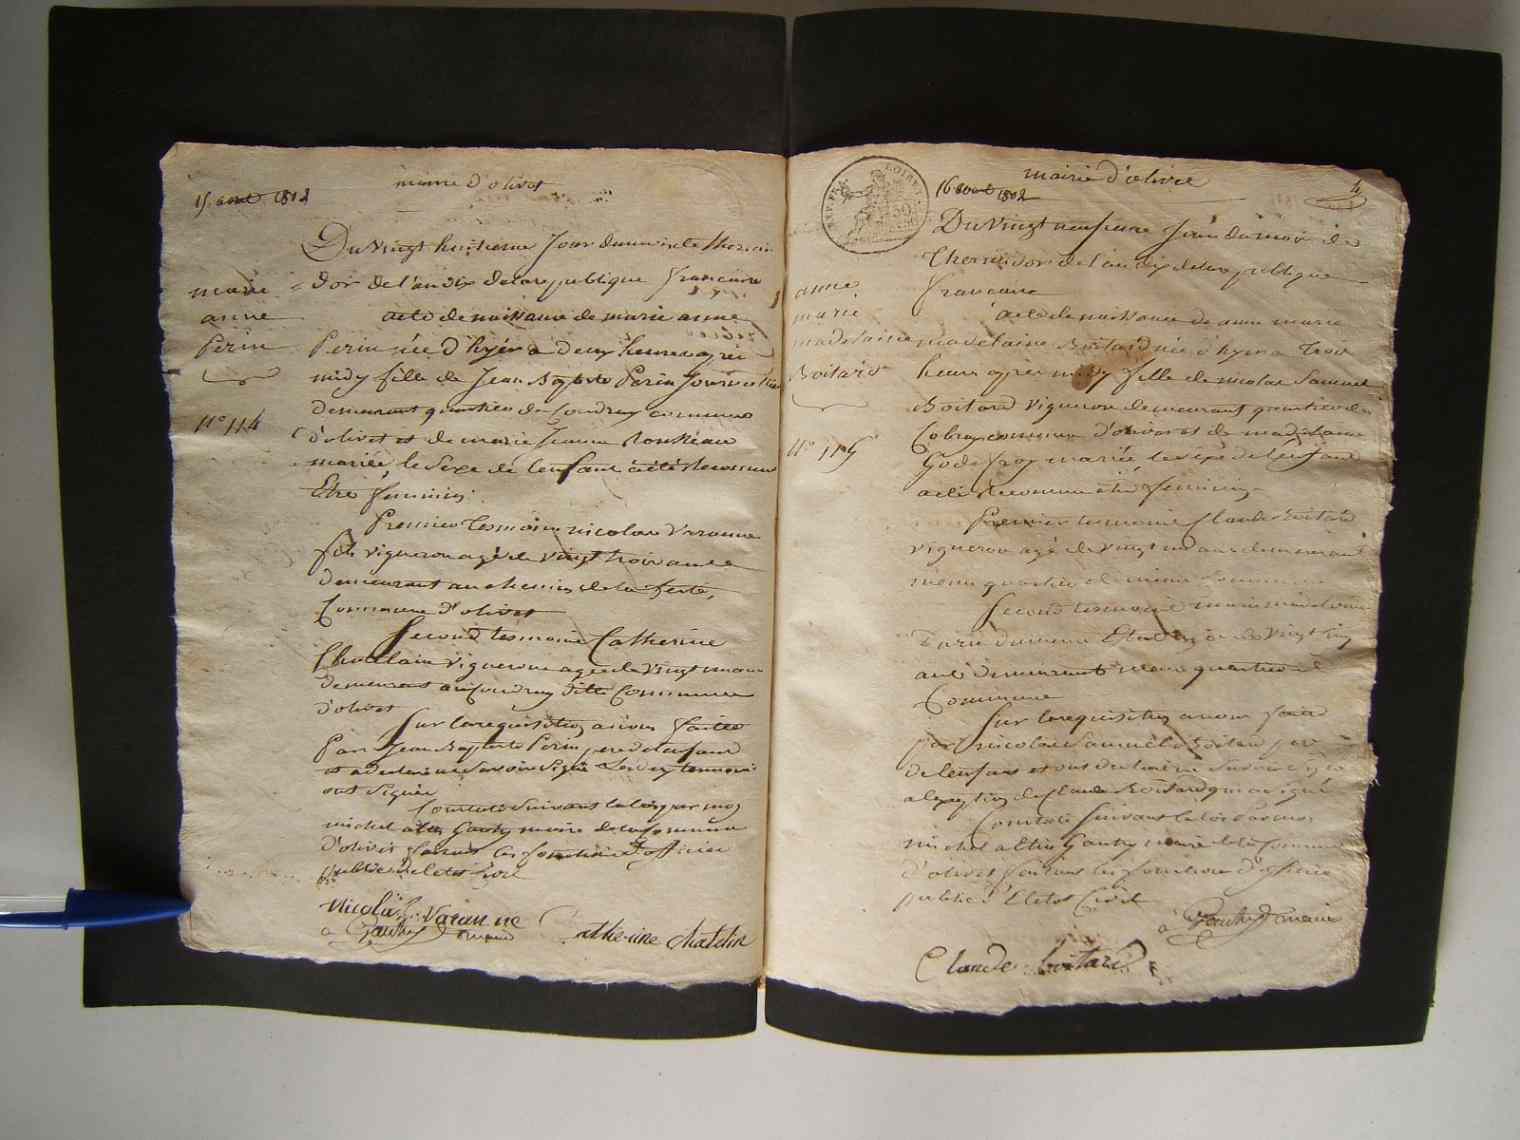 mairie d'olivet
15 aout 1802
Du vingt huitieme Jour du mois de thermi
dor de l'an dix de la republique francaise
marie
anne
Perin
n° 114
acte de naissance de marie anne
Perin née d'hyer a deux heures apres
midy fille de Jean Baptiste Perin
demeurant quartier du Coudray commune
d'olivet et de marie Jeanne Rousseau
mariée le Sexe de lenfant a été reconnu
Etre feminin
Premier tesmoin nicolas Varanne
fils vigneron agé de vingt trois ans
demeurant au chemin de la ferté,
Commune d'olivet
Second tesmoin Catherine
vigneronne agée de vingt
demeurant au Coudray ditte Commune
d'olivet
Sur la requisition a nous faitte
Par Jean Baptiste Perin pere de lenfant
et a declaré ne Savoir Signé Les deux temoins
ont Signée
Constaté Suivant la loy par moy
michel altin Gaudry maire de la Commune
d'olivet faisant les fonctions d'officier
public de letat Civil
Nicolas Varanne
Gaudry maire
Catherine Chatelin
mairie d'olivet
16 aout 1802
4
REP. FRA.
LOIRET
50
Du Vingt neufieme Jour du mois de
Thermidor de l'an dix de la republique
francaise
anne
marie
madelaine
Boitard
n° 115
acte de naissance de anne marie
madelaine Boitard née d'hyer a trois
heures apres midy fille de nicolas Samuel
Boitard vigneron demeurant quartier du
commune d'olivet et de madelaine
Godefroy mariée le sexe de lenfant
a été reconnu être feminin
Premier tesmoin Claude Boitard
vigneron agé de vingt un ans demeurant
meme quartier et meme Commune
Second tesmoin
ans demeurant meme quartier et
Commune
Sur la requisition a nous fait
par nicolas Samuel Boitard pere
de lenfant et ont declaré ne Savoir Signé
a lexeption de Claude Boitard qui a signé
Constaté Suivant la loi par moi
michel altin Gaudry maire de la Commune
d'olivet faisant les fonctions d'officier
public d'Letat Civil
Gaudry maire
Claude boitard